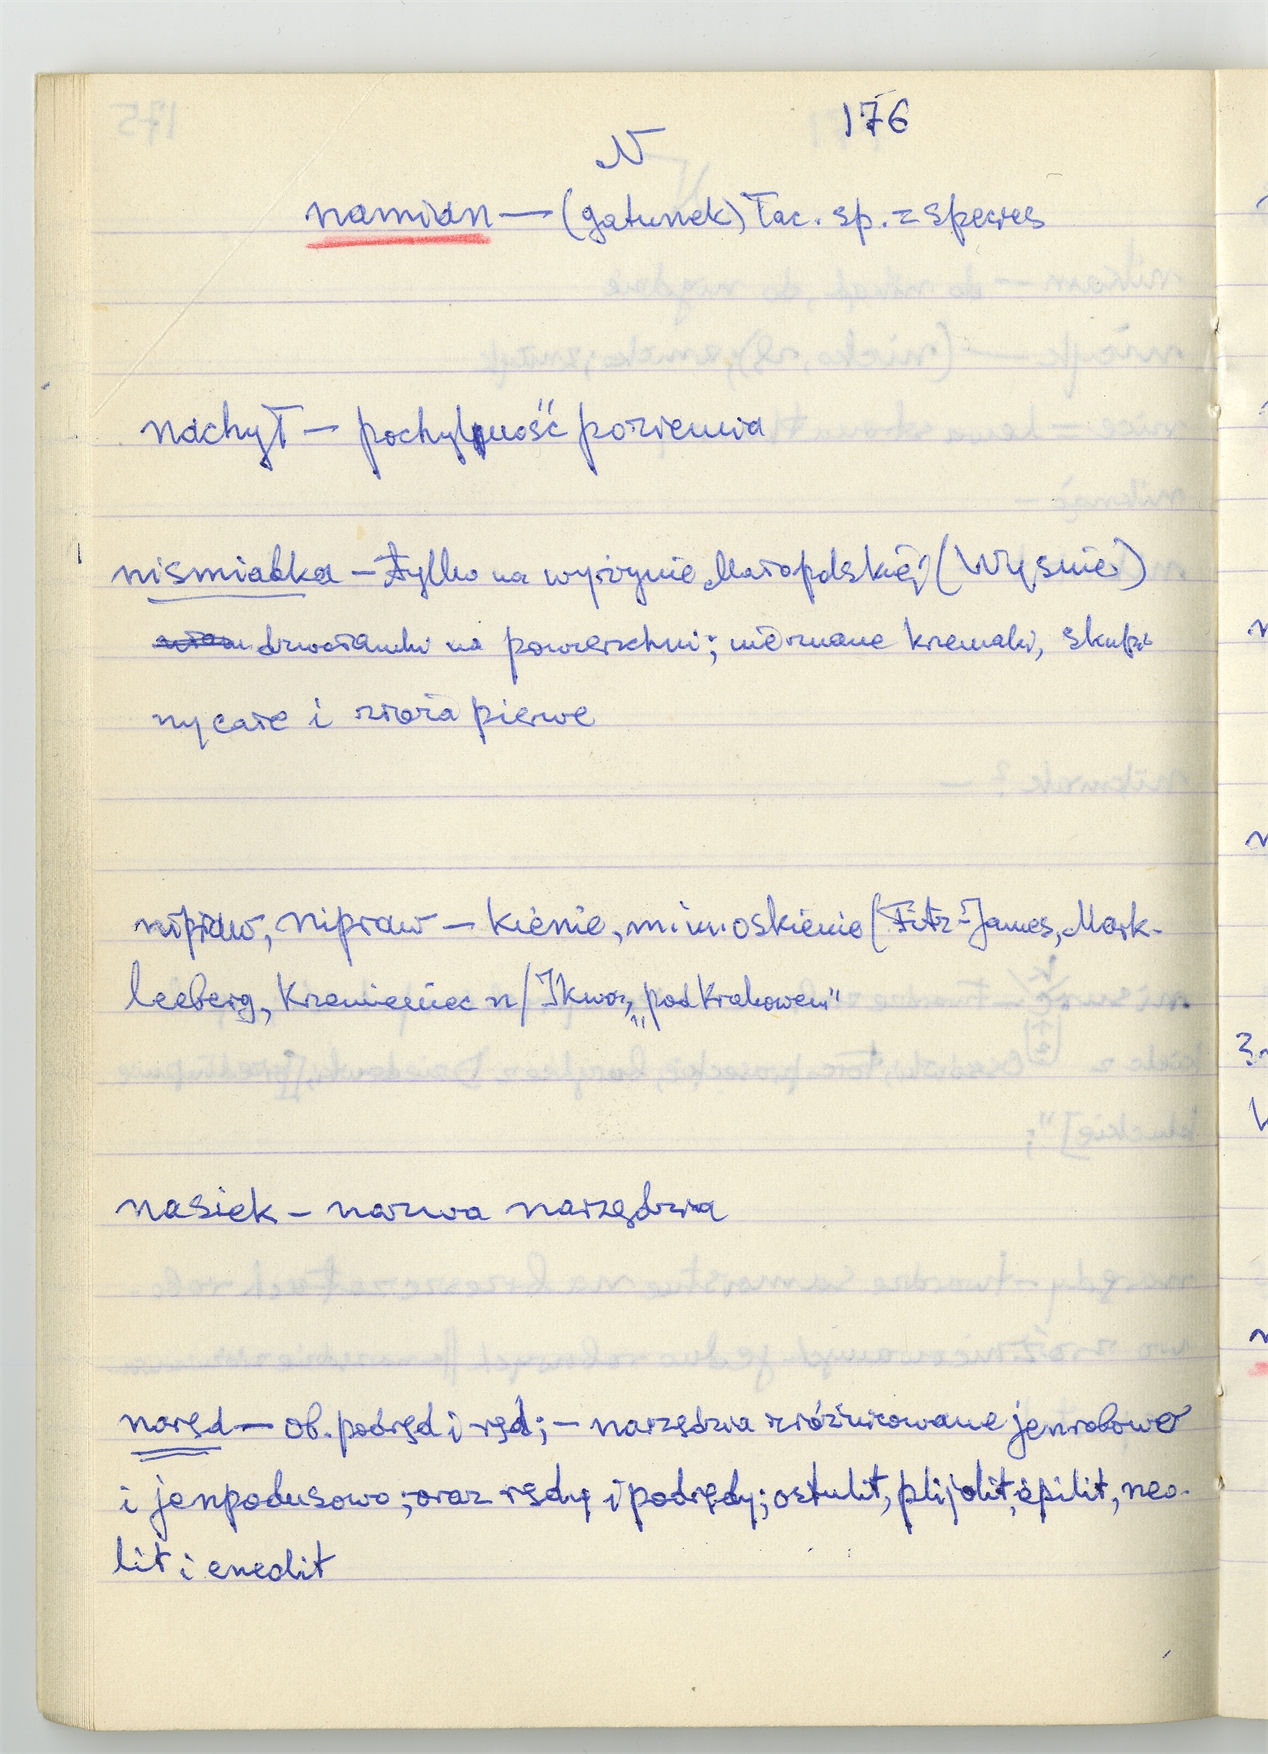 176
N
namian — (gatunek) łac. sp. = species
nachył — pochylność poziemia
nismiatka — tylko na wyżynie Małopolskiej (Wyśnie)
dzwořanki na powierzchni; nieznane krzemaki, skupi-
ny całe i złoża pierwe
nipraw, nipraw — kienie, mimoskienie (Fitz-James, Mark-
leeberg, Krzemieniec n/Ikwą, „pod Krakowem"
nasiek — nazwa narzędzia
naręd — ob. podręd i ręd; — narzędzia zróżnicowane jenrobowo
i jenpodusowo; oraz rędy i podrędy; ostulit, plijolit, epilit, neo-
lit i eneolit